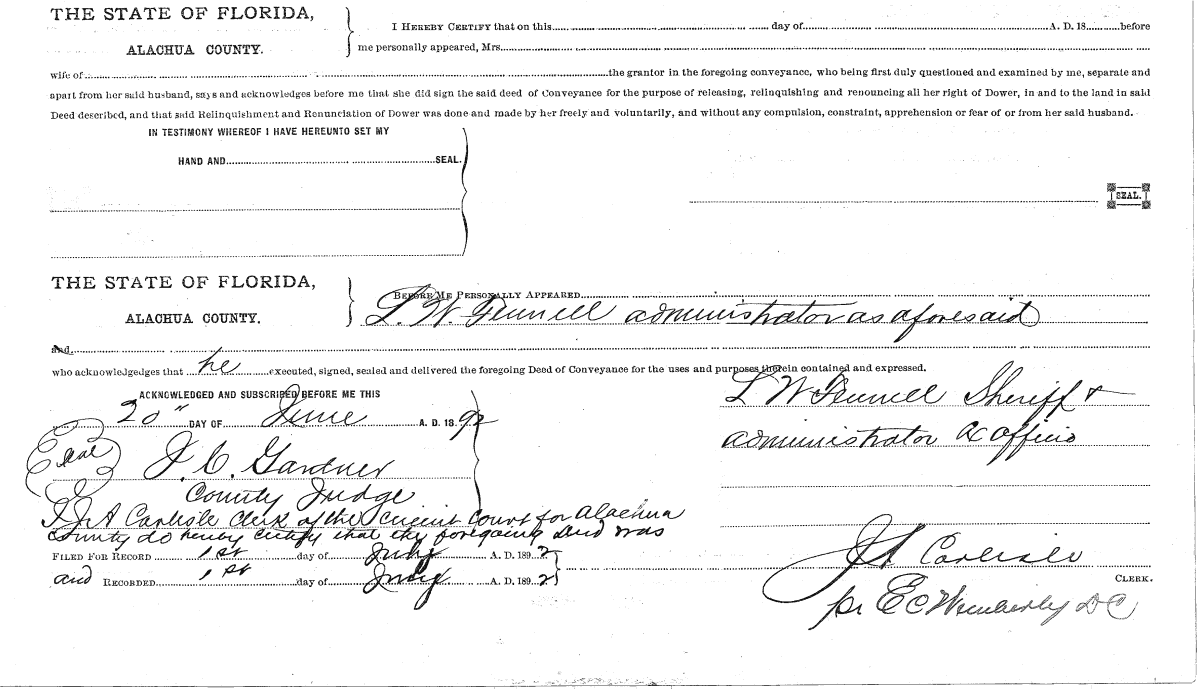 THE STATE OF FLORIDA,
ALACHUA COUNTY.
I HEREBY CERTIFY that on this day of A. D. 18 before
me personally appeared, Mrs.
wife of the grantor in the foregoing conveyance, who being first duly questioned and examined by me, separate and
apart from her said husband, says and acknowledges before me that she did sign the said deed of Conveyance for the purpose of releasing, relinquishing and renouncing all her right of Dower, in and to the land in said
Deed described, and that said Relinquishment and Renunciation of Dower was done and made by her freely and voluntarily, and without any compulsion, constraint, apprehension or fear of or from her said husband.
IN TESTIMONY WHEREOF I HAVE HEREUNTO SET MY
HAND AND SEAL.
SEAL.
THE STATE OF FLORIDA,
ALACHUA COUNTY.
BEFORE ME PERSONALLY APPEARED
L. W. Fennell administrator as aforesaid
and
who acknowledgedges that he executed, signed, sealed and delivered the foregoing Deed of Conveyance for the uses and purposes therein contained and expressed.
ACKNOWLEDGED AND SUBSCRIBED BEFORE ME THIS
20" DAY OF June A. D. 18 92
Seal J. C. Gardner
County Judge
L W Fennell Sheriff &
administrator Ex officio
I J A Carlisle Clerk of the Circuit Court for Alachua
County do hereby certify that the foregoing Deed was
FILED FOR RECORD 1st day of July A. D. 189 2
and RECORDED 1st day of July A. D. 189 2
J A Carlisle
CLERK.
pr E C Wimberly DC